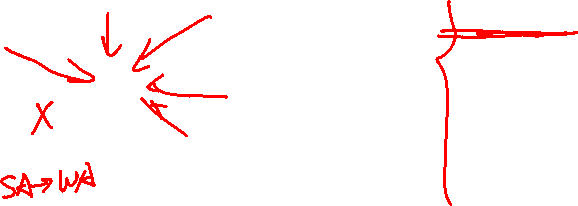 X
SA→WA